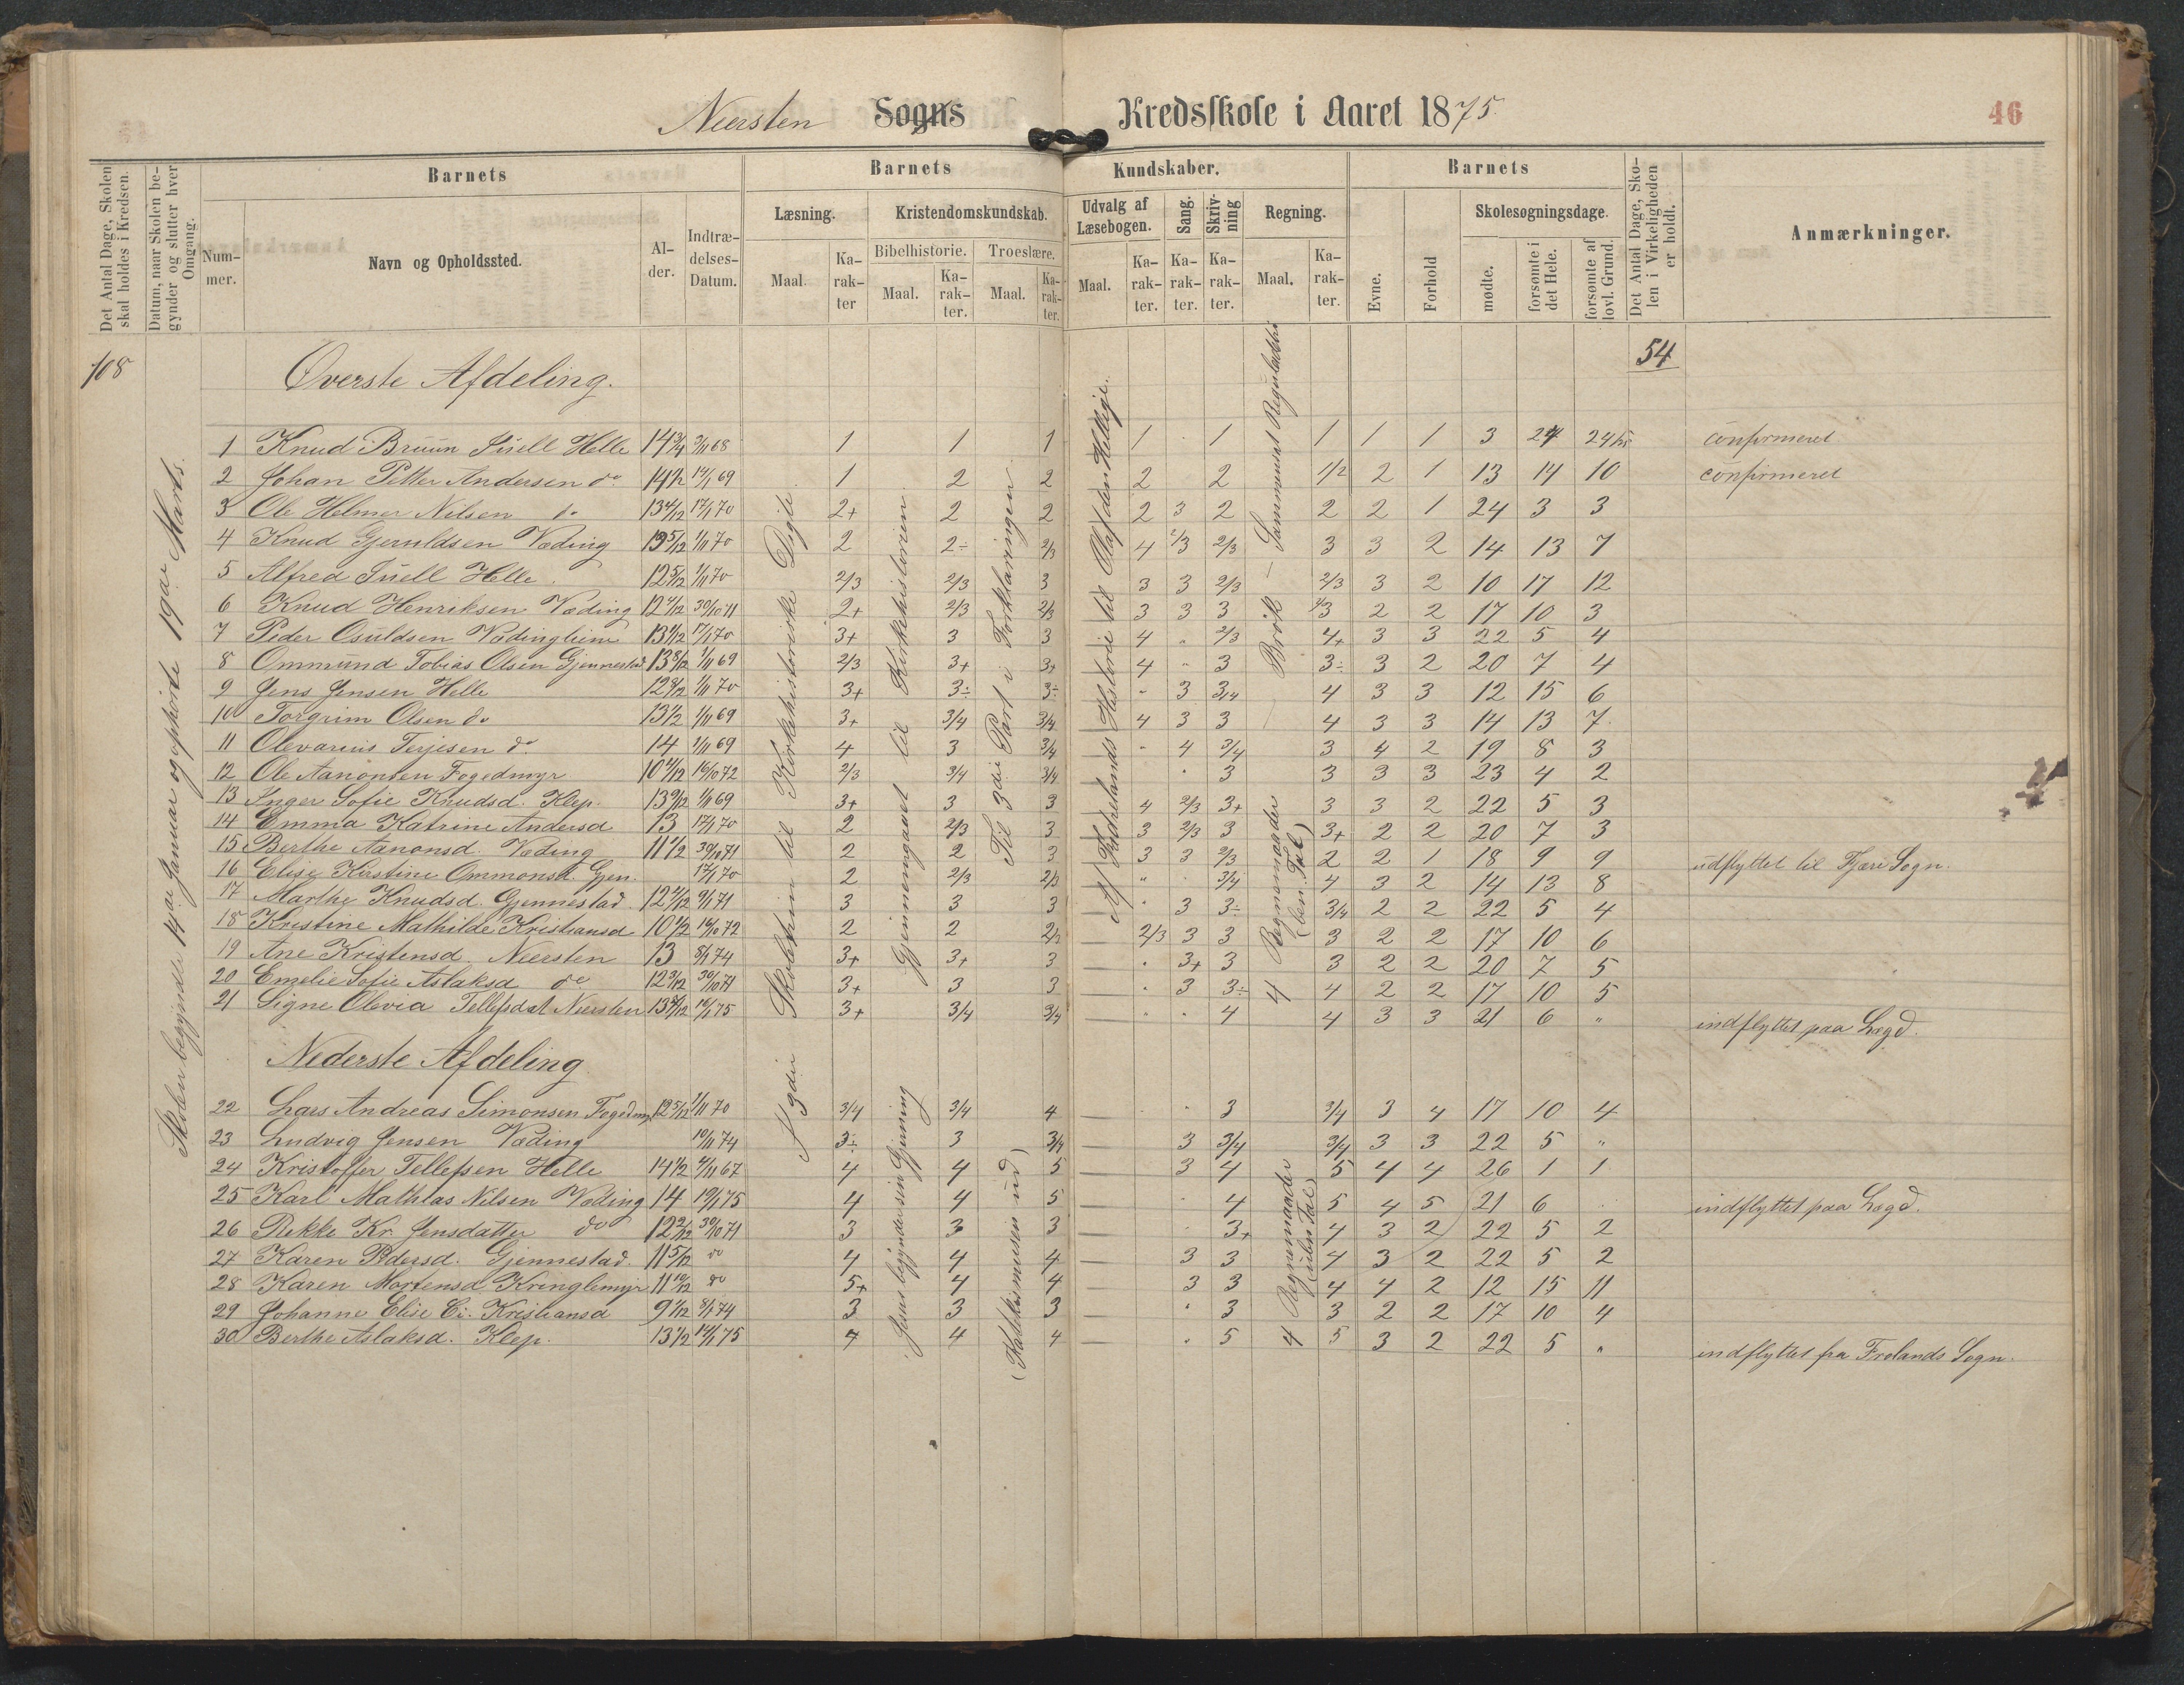 Neersten Sogns Kredsskole i Aaret 1875.
46
Det Antal Dage, Skolen skal holdes i Kredsen.
Datum, naar Skolen begynder og slutter hver Omgang.
Barnets
Nummer.
Navn og Opholdssted.
Alder.
Indtrædelses-Datum.
Barnets Kundskaber.
Læsning.
Maal.
Karakter
Kristendomskundskab.
Bibelhistorie.
Maal.
Karakter.
Troeslære.
Maal.
Karakter.
Udvalg af Læsebogen.
Maal.
Karakter.
Sang.
Karakter.
Skrivning
Karakter.
Regning.
Maal.
Karakter.
Barnets
Evne.
Forhold
Skolesøgningsdage.
mødte.
forsømte i det Hele.
forsømte af lovl. Grund.
Det Antal Dage, Skolen i Virkeligheden er holdt.
Anmærkninger.
108
54
Skolen begyndte 14de Januar og ophørte 19de Marts.
Øverste Afdeling.
1 Knud Bruun Juell Helle 14 3/4 3/11 68 1 1 1 1 . 1 1 1 1 3 24 24 confirmeret
2 Johan Petter Andersen do 14 1/2 14/1 69 1 2 2 2 2 1/2 2 1 13 14 10 confirmeret
3 Ole Helmer Nilsen do 13 4/12 17/1 70 2+ 2 2 2 3 2 2 2 1 24 3 3
4 Knud Gjeruldsen Væding 13 5/12 1/11 70 2 2÷ 2/3 4 2/3 2/3 3 3 2 14 13 7
5 Alfred Juell Helle. 12 5/12 1/11 70 2/3 2/3 3 3 3 2/3 2/3 3 2 10 17 12
6 Knud Henriksen Væding 12 4/12 30/10 71 2+ 2/3 2/3 3 3 3 2/3 2 2 17 10 3
7 Peder Osuldsen Vædingheim 13 4/12 17/1 70 3+ 3 3 4 " 2/3 4+ 3 3 22 5 4
8 Ommund Tobias Olsen Gjennestad 13 8/12 1/11 69 2/3 3+ 3+ 4 " 3 3÷ 3 2 20 7 4
9 Jens Jensen Helle 12 8/12 1/11 70 3+ 3÷ 3÷ " 3 3/4 4 3 3 12 15 6
10 Torgrim Olsen do 13 1/2 1/11 69 3+ 3/4 3/4 4 3 3 4 3 3 14 13 7
11 Olevarius Terjesen do 14 1/11 69 4 3 3/4 " 4 3/4 3 4 2 19 8 3
12 Ole Aanonsen Fogedmyr 10 11/12 16/10 72 2/3 3/4 3/4 . 3 3 3 3 23 4 2
13 Inger Sofie Knudsd. Klep. 13 9/12 1/11 69 3+ 3 3 4 2/3 3+ 3 3 2 22 5 3
14 Emma Katrine Andersd 13 17/1 70 2 2/3 3 3 2/3 3 3+ 2 2 20 7 3
15 Berthe Aanonsd. Væding 11 1/2 30/10 71 2 2 3 3 3 2/3 2 2 1 18 9 9 udflyttet til Fjære Sogn.
16 Elise Kirstine Ommonsd. Gjen. 17/1 70 2 2/3 2/3 " . 3/4 4 3 2 14 13 8
17 Marthe Knudsd. Gjennestad 12 2/12 9/1 71 3 3 3 " 3 3÷ 3/4 2 2 22 5 4
18 Kristine Mathilde Kristiansd 10 1/2 16/10 72 2 2 2/3 2/3 3 3 3 2 2 17 10 6
19 Ane Kristensd. Neersten 13 8/1 74 3+ 3+ 3 . 3+ 3 3 2 2 20 7 5
20 Emelie Sofie Aslaksd do 12 3/12 30/10 71 3+ 3 3 . 3 3÷ 4 2 2 17 10 5
21 Signe Olevia Tellefsdat Neersten 13 8/12 16/1 75 3+ 3/4 3/4 " . 4 4 3 3 21 6 " indflyttet paa Lægd.
Nederste Afdeling
22 Lars Andreas Simonsen Fogedmyr 12 5/12 1/11 70 3/4 3/4 4 . . 3 3/4 3 4 17 10 4
23 Ludvig Jensen Væding 10/11 74 3÷ 3 3/4 3 3/4 3/4 3 3 22 5 "
24 Kristoffer Tellefsen Helle 14 1/2 4/11 67 4 4 5 3 4 5 4 4 26 1 1
25 Karl Mathias Nilsen Væding 14 19/1 75 4 4 5 . 4 5 4 5 21 6 . indflyttet paa Lægd.
26 Rikke Kr. Jensdatter do 12 2/12 30/10 71 3 3 3 . 3+ 4 3 2 22 5 2
27 Karen Pedersd. Gjennestad 11 5/12 do 4 4 4 3 3 4 3 2 22 5 2
28 Karen Mortensd Kringlemyr 11 10/12 do 5+ 4 4 3 3 4 4 2 12 15 11
29 Johanne Elise Ci. Kristiansd 9 1/12 8/1 74 3 3 3 . 3 3 2 2 17 10 4
30 Berthe Aslaksd. Klep. 13 1/2 14/1 75 4 4 4 . 5 5 3 2 22 5 " indflyttet fra Frolands Sogn.
Af 3die Skoletrin til Kirkehistoriske Digte
Gjennemgaaet til Kirkehistorien
Jesus begynder sin Gjerning
Til 3die Part i Forklaringen
(Katekismusen ud)
Af Fædrelands Historie til Olaf den Hellige.
4 Regnemaader (ben. Tal) — Brøk — Sammensat Reguladetri
4 Regnemaader (uben Tal)